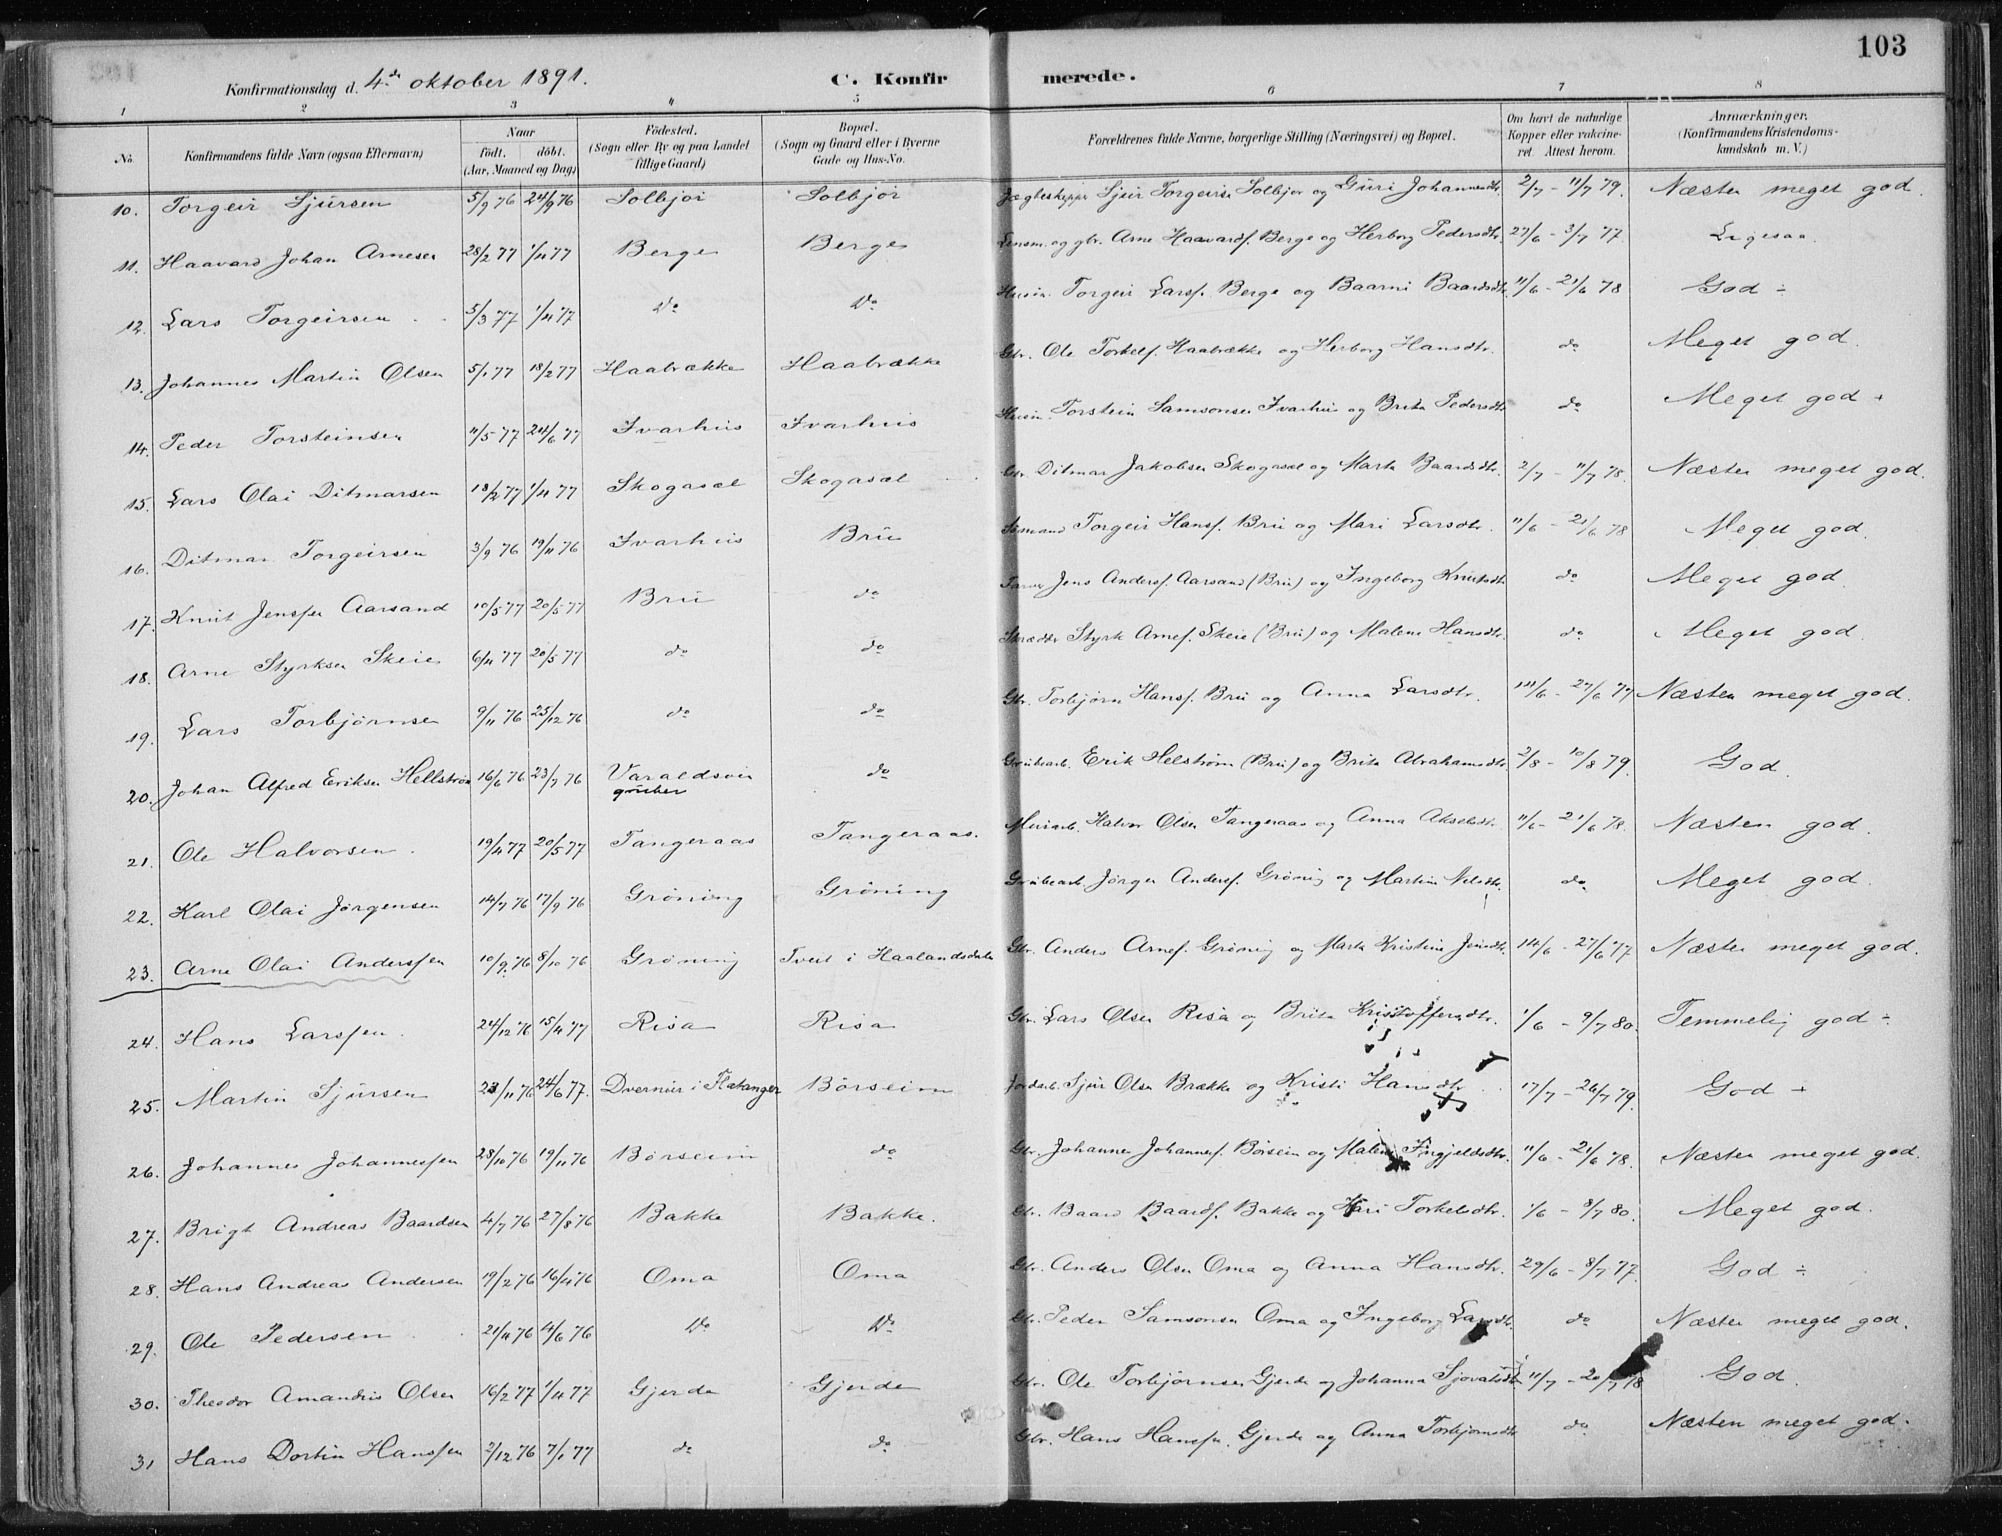 103
Konfirmationsdag d. 4de oktober 1891. C. Konfirmerede.
1 2 3 4 5 6 7 8
No. Konfirmandens fulde Navn (ogsaa Efternavn) Naar født. døbt. (Aar, Maaned og Dag) Fødested. (Sogn eller By og paa Landet tillige Gaard) Bopæl. (Sogn og Gaard eller i Byerne Gade og Hus-No. Forældrenes fulde Navne, borgerlige Stilling (Næringsvei) og Bopæl. Om havt de naturlige Kopper eller vakcineret. Attest herom. Anmærkninger. (Konfirmandens Kristendomskundskab m. V.)
10. Torgeir Sjursen 5/9 76 24/9 76 Solbjør Solbjør Sjur Torgeirsen Solbjør og Guri Johannesdtr. 2/7 - 11/7 79. Næsten meget god.
11. Haavard Johan Arnesen 28/2 77 1/4 77 Berge Berge Lensm. og gbr. Arne Haavardf. Berge og Herborg Pedersdtr. 27/6 - 3/7 77. Ligesaa.
12. Lars Torgeirsen 5/3 77 1/4 77 Do Do Husm. Torgeir Larsf. Berge og Baarni Baardsdtr. 11/6 - 21/6 78 God ÷
13. Johannes Martin Olsen 5/1 77 18/2 77 Haabrække Haabrække Gbr. Ole Torkelf. Haabrække og Herborg Hansdtr. do Meget god.
14. Peder Torsteinsen 11/5 77 24/6 77 Ivarhus Ivarhus Husm. Torstein Samsonsen Ivarhus og Brita Pedersdtr do Meget god +
15. Lars Olai Ditmarsen 18/2 77 1/4 77 Skogasæl Skogasæl Gbr. Ditmar Jakobsen Skogasæl og Marta Baardsdtr. 2/7 - 11/7 78. Næsten meget god.
16. Ditmar Torgeirsen 3/9 76 19/11 76 Ivarhus Bru Sømand Torgeir Hansf. Bru og Mari Larsdtr. 11/6 - 21/6 78 Meget god.
17. Knut Jensen Aarsand 10/5 77 20/5 77 Bru do Jens Andersf. Aarsand (Bru) og Ingeborg Knutsdtr do Meget god.
18. Arne Styrksen Skeie 6/4 77 20/5 77 do do Skrædder Styrk Arnef. Skeie (Bru) og Malene Hansdtr. do Meget god.
19. Lars Torbjørnsen 9/11 76 25/12 76 do do Gbr. Torbjørn Hansf. Bru og Anna Larsdtr. 14/6 - 27/6 77 Næsten meget god.
20. Johan Alfred Eriksen Hellstrøm 16/6 76 23/7 76 Varaldsøen gruber do Grubearb. Erik Helstrøm (Bru) og Brita Abrahamsdtr. 2/8 - 10/8 79. God.
21. Ole Halvorsen. 19/4 77 20/5 77 Tangeraas Tangeraas. Murarb. Halvor Olsen Tangeraas og Anna Akselsdtr. 11/6 - 21/6 78. Næsten god.
22. Karl Olai Jørgensen 14/7 76 17/9 76 Grøning Grøning Grubearb. Jørgen Andersf. Grøning og Martha Nilsdtr. do Meget god.
23. Arne Olai Andersen 10/9 76 8/10 76 Grøning Tveit i Haalandsdalen Gbr. Anders Arnef. Grøning og Marta Kristine Jensdtr. 14/6 - 27/6 77 Næsten meget god.
24. Hans Larsen. 24/12 76 15/4 77 Risa Risa Gbr. Lars Olsen Risa og Brita Kristoffersdtr. 1/6 - 9/7 80. Temmelig god ÷.
25. Martin Sjursen 23/11 76 24/6 77. i Flatanger Børseim Jordarb. Sjur Olsen Brække og Kristi Hansdtr. 17/7 - 26/7 79. God +
26. Johannes Johannesen 28/10 76 19/11 76 Børseim do Gbr. Johannes Johannesf. Børseim og Malene Ingjeldsdtr. 11/6 - 21/6 78. Næsten meget god.
27. Brigt Andreas Baardsen 4/7 76 27/8 76 Bakke Bakke. Gbr. Baard Baardf. Bakke og Kari Torkelsdtr. 1/6 - 8/7 80. Meget god.
28. Hans Andreas Andersen 19/2 76 16/4 76 Oma Oma Gbr. Anders Olsen Oma og Anna Hansdtr. 29/6 - 8/7 77. God ÷
29. Ole Pedersen. 21/4 76 4/6 76 Do Do Gbr. Peder Samsonsen Oma og Ingeborg Larsdtr. do Næsten meget god.
30. Theodor Amandus Olsen 16/2 77 1/4 77 Gjerde Gjerde Gbr. Ole Torbjørnsen Gjerde og Johanna Sjovatsdtr. 11/7 - 20/7 78 God.
31 Hans Dortin Hansen 2/12 76 7/1 77 do do Gbr. Hans Hansen Gjerde og Anna Torbjørnsdtr do Næsten meget god.